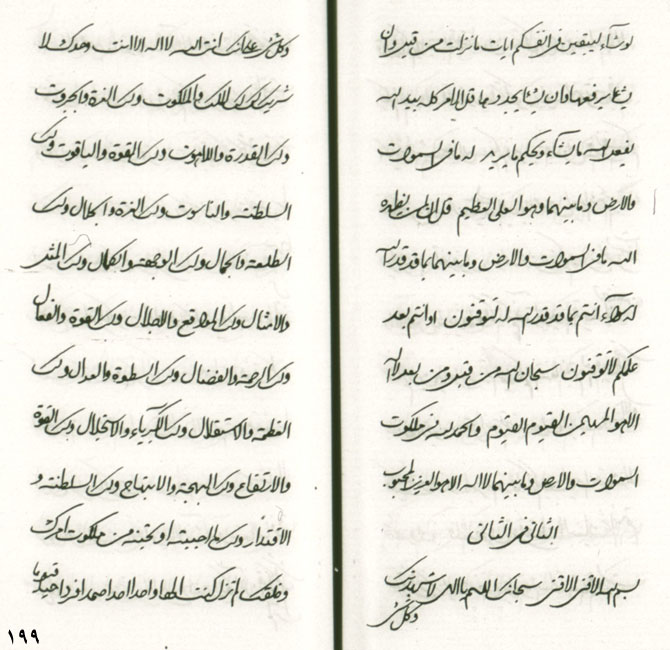 لو شاء ليبقين في انفسكم ايات ما نزلت من قبل وان
يشا يرفعها وان يشا يجدد بها قل الامر كله بيد الله
يفعل الله ما يشاء ويحكم ما يريد له ما في السموات
والارض وما بينهما وهو العلي العظيم قل ان يظهره
الله ما في السموات والارض وما بينهما بما قد قدر الله
له هؤلاء انتم بما قد قدر الله له لتوقنون او انتم بعد
علمكم لا توقنون سبحان الله من قبل ومن بعد لا اله
الا هو المهيمن القيوم والحمد لله في ملكوت
السموات والارض وما بينهما لا اله الا هو العزيز المحبوب
الثاني في الثاني
بسم الله الاقن الاقن سبحانك اللهم يا الهي لاشهدنك
وكل شئ
وكل شئ على انك انت الله لا اله الا انت وحدك لا
شريك لك لك الملك والملكوت ولك العزة والجبروت
ولك القدرة واللاهوت ولك القوة والياقوت ولك
السلطنة والناسوت ولك العزة والجلال ولك
الطلعة والجمال ولك الوجهة والكمال ولك المثل
والامثال ولك المواقع والاجلال ولك القوة والفعال
ولك الرحمة والفضال ولك السطوة والعدال ولك
العظمة والاستقلال ولك الكبرياء والاستجلال ولك القوة
والارتفاع ولك البهجة والابتهاج ولك السلطنة و
الاقتدار ولك ما احببته او تحبنه من ملكوت امرك
وخلقك لم تزل كنت الها واحدا احدا صمدا فردا حيا قيوما
١٩٩